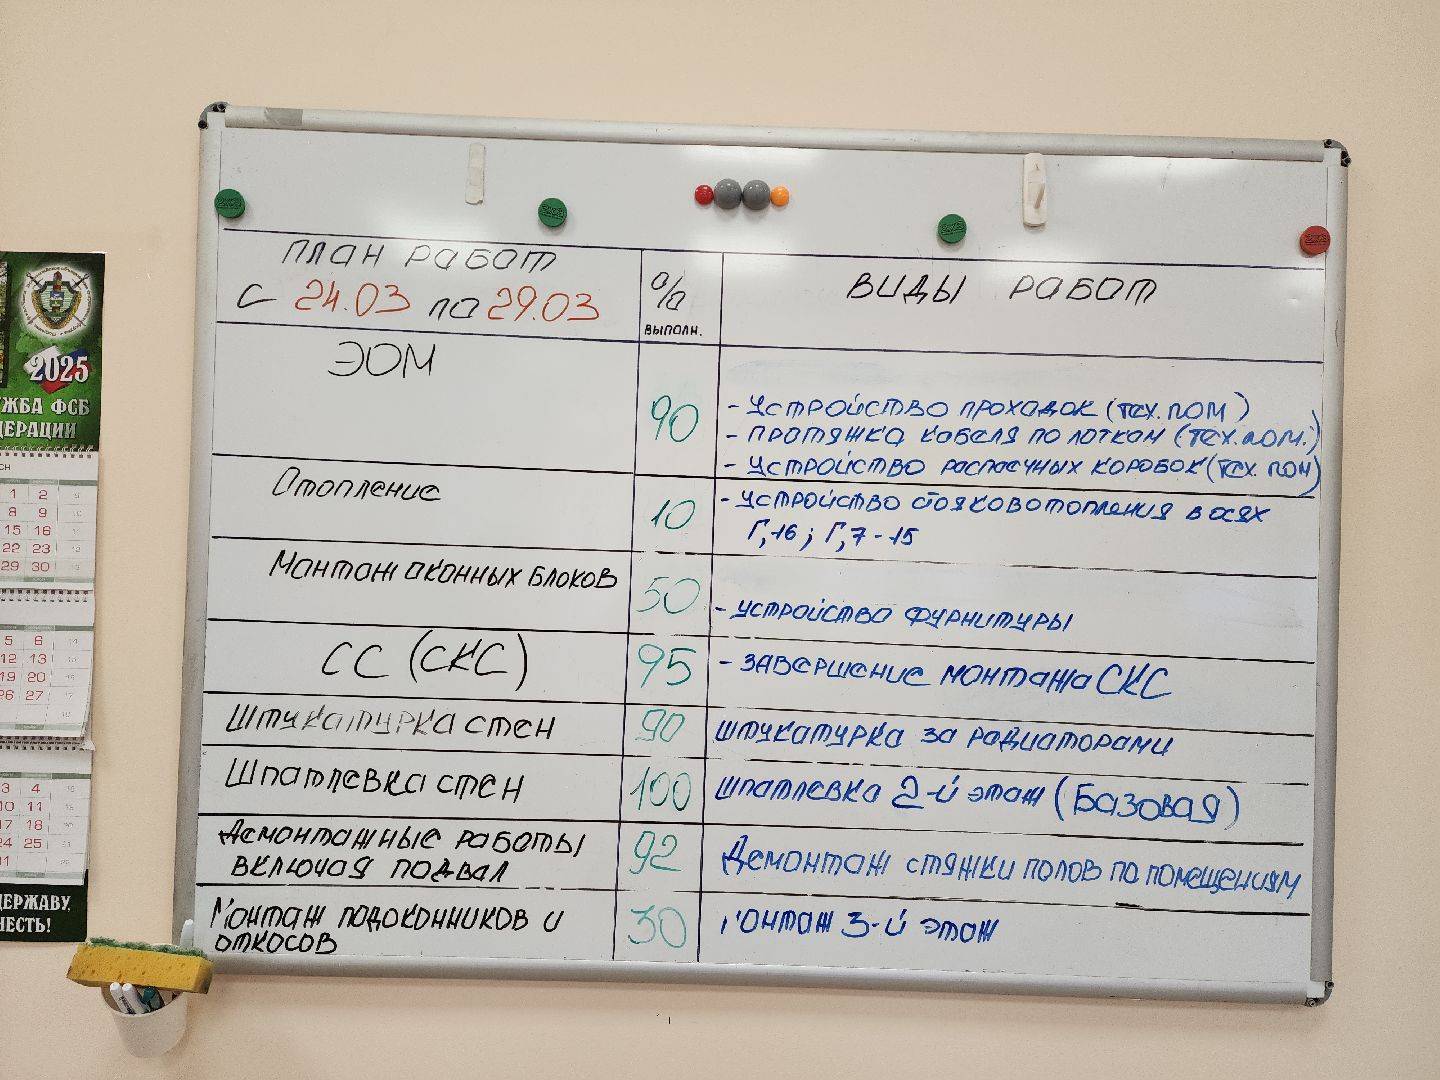 ПЛАН РАБОТ
С 24.03 по 29.03
%
выполн.
ВИДЫ РАБОТ
ЭОМ
90
- Устройство проходок (тех. пом)
- Протяжка кабеля по лоткам (тех. пом.)
- Устройство распаечных коробок (тех. пом)
Отопление
10
- Устройство стояков отопления в осях
Г,16; Г,7-15
Монтаж оконных блоков
50
- Устройство фурнитуры
СС (СКС)
95
- Завершение монтажа СКС
Штукатурка стен
90
Штукатурка за радиаторами
Шпатлевка стен
100
Шпатлевка 2-й этаж (Базовая)
Демонтажные работы
включая подвал
92
Демонтаж стяжки полов по помещениям
Монтаж подоконников и
откосов
30
Монтаж 3-й этаж
2025
ЖБА ФСБ
ЕРАЦИИ
1 2
8 9
15 16
22 23
29 30
5 6
12 13
19 20
26 27
3 4
10 11
17 18
24 25
ДЕРЖАВУ,
ЧЕСТЬ!